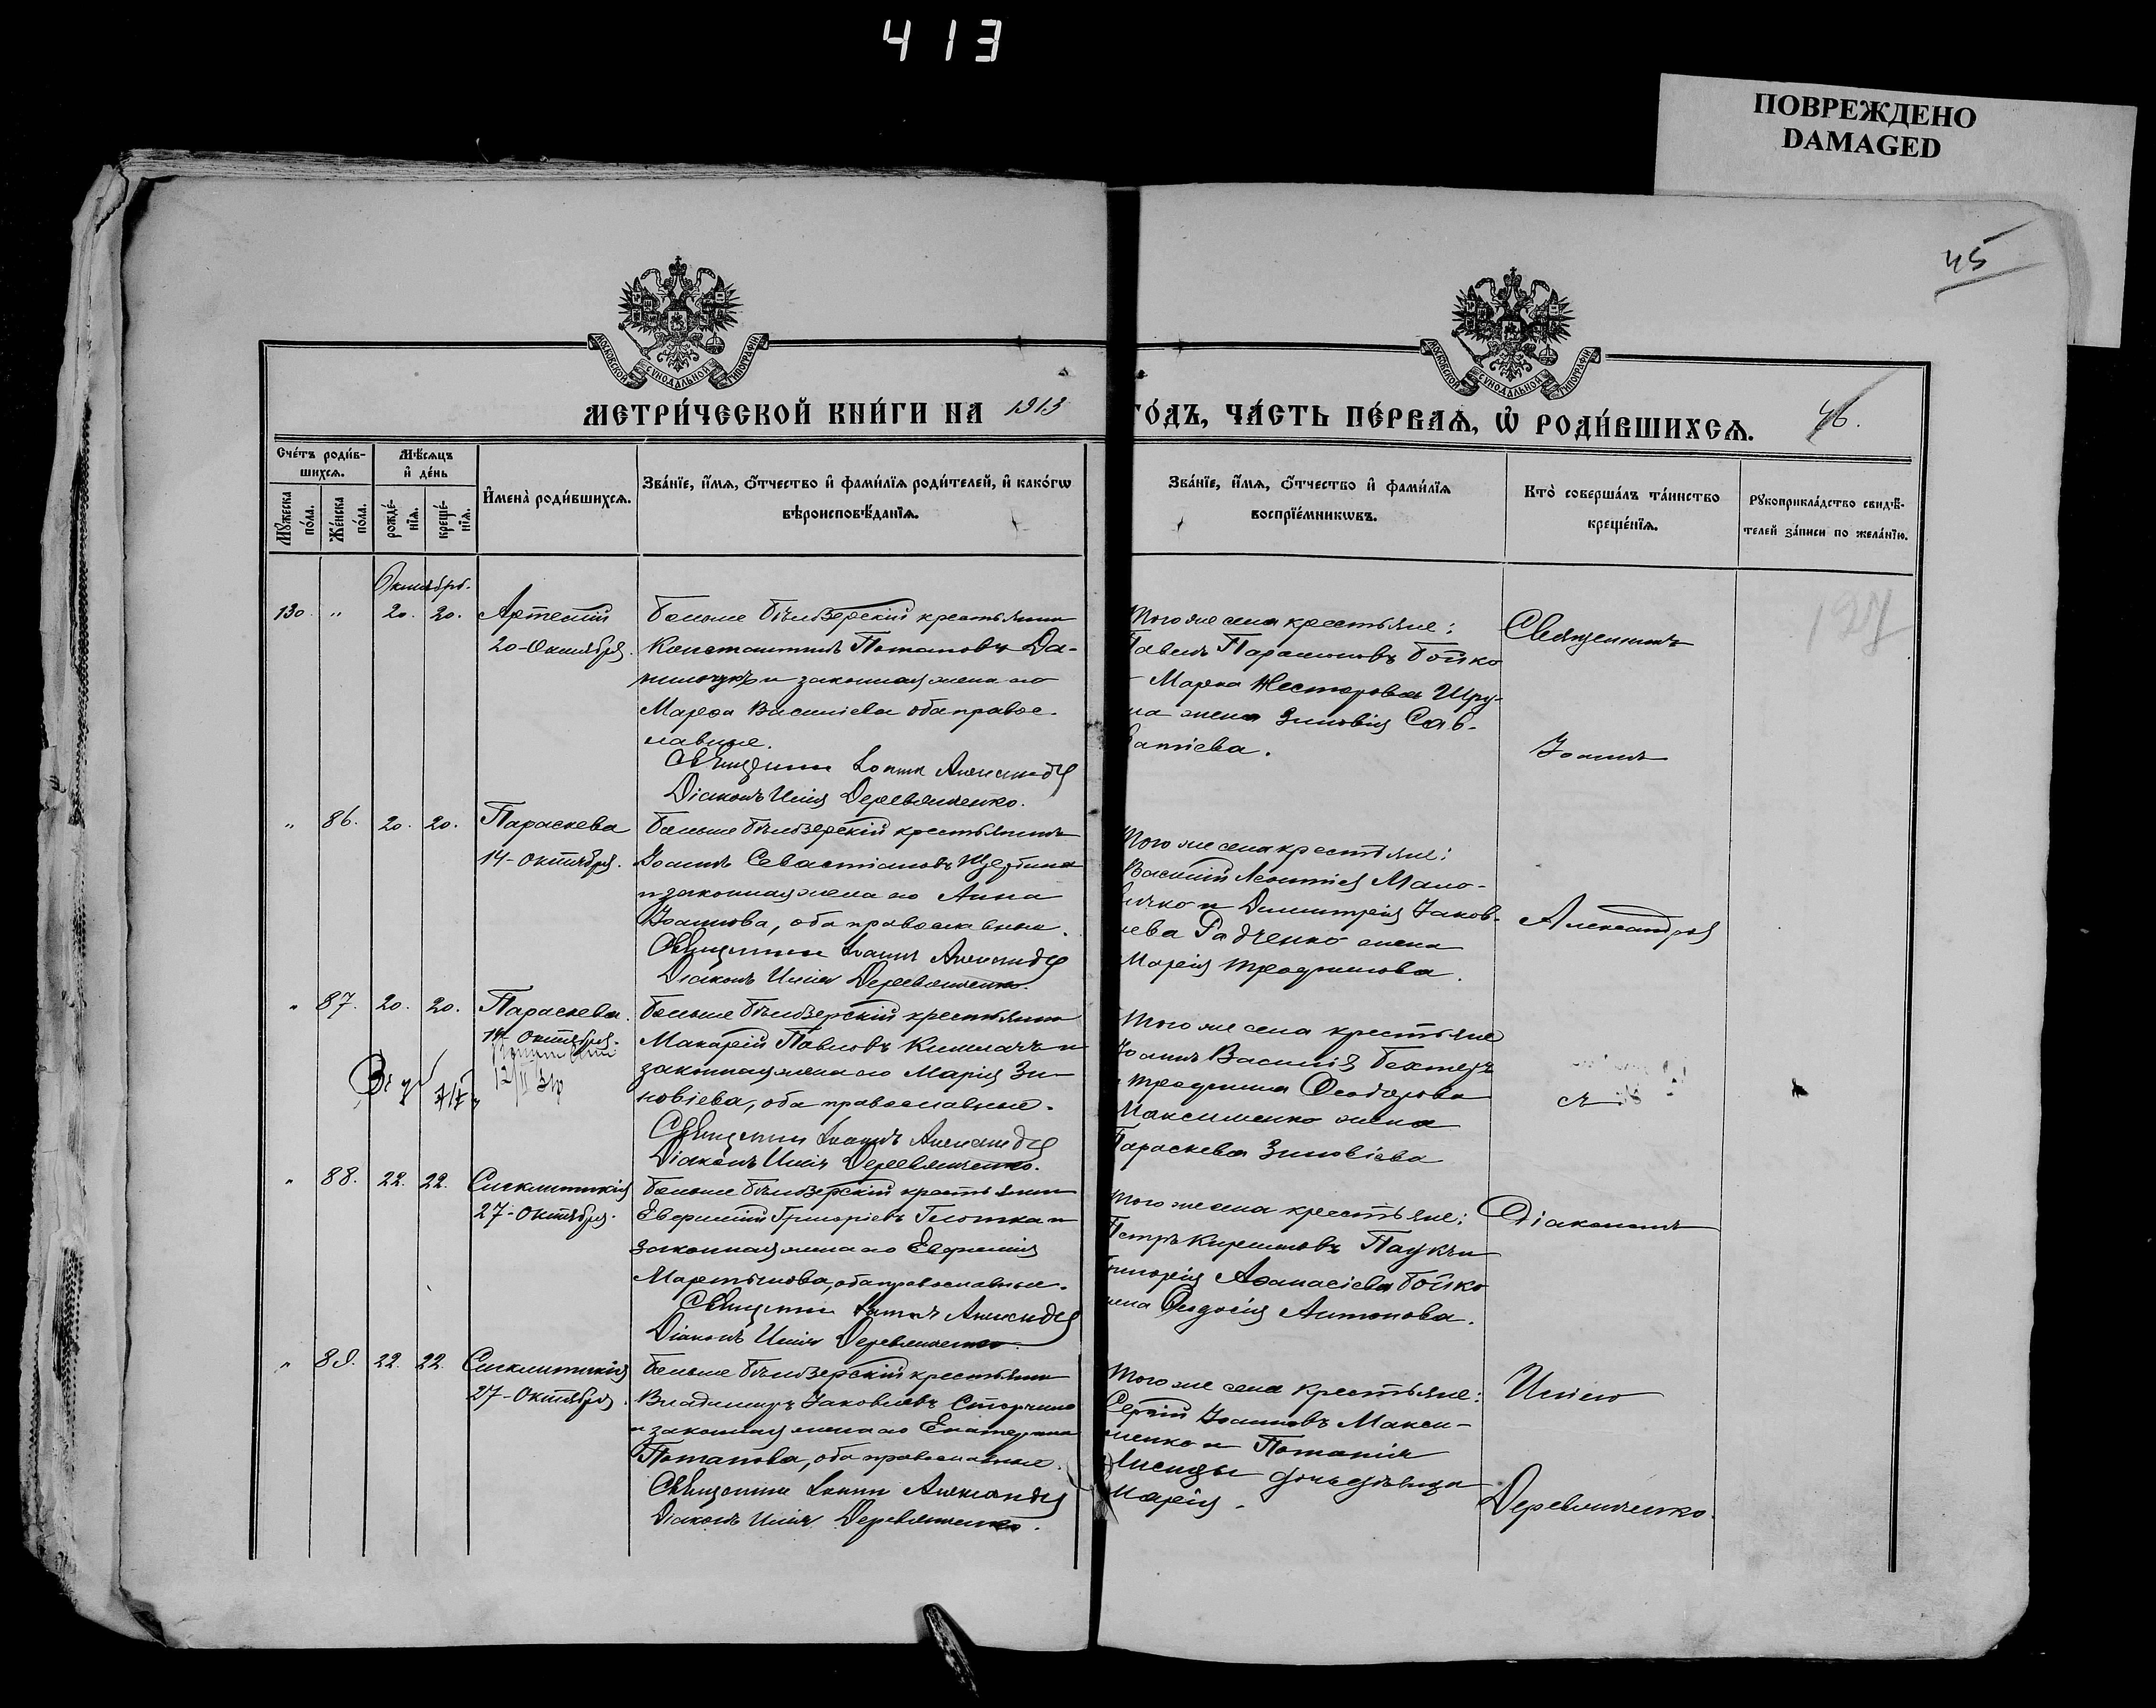 413
ПОВРЕЖДЕНО
DAMAGED
45
МОСКОВСКОЙ СѴНОДАЛЬНОЙ ТИПОГРАФІИ
МОСКОВСКОЙ СѴНОДАЛЬНОЙ ТИПОГРАФІИ
МЕТРИ́ЧЕСКОЙ КНИ́ГИ НА 1913
ГО́ДЪ, ЧА́СТЬ ПЕ́РВАѦ, Ѡ҆ РОДИ́ВШИХСѦ.
46.
Сче́тъ роди́в-
шихсѧ.
Мѣ́сѧцъ
и҆ де́нь
Мꙋ́жеска по́ла.
Же́нска по́ла.
рожде́-
нїѧ.
креще́-
нїѧ.
И҆мена̀ роди́вшихсѧ.
Зва́нїе, и҆́мѧ, ѻ҆́тчество и҆ фами́лїѧ роди́телей, и҆ како́гѡ
вѣроисповѣ́данїѧ.
Зва́нїе, и҆́мѧ, ѻ҆́тчество и҆ фами́лїѧ
воспрїе́мникѡвъ.
Кто̀ соверша́лъ та́инство
креще́нїѧ.
Рꙋкоприкла́дство свидѣ́-
телей за́писи по жела́нїю.
Октябрь.
130. " 20. 20. Артемій
20-Октября.
Больше Бѣлозерскій крестьянин
Константинъ Потаповъ Да-
нильчукъ и законная жена его
Марѳа Василіева оба право-
славные.
Священникъ Іоаннъ Александр
Діаконъ Илія Деревянченко.
Того же села крестьяне:
Павелъ Парамоновъ Бойко
Марѳа Несторова
жена Зиновія Сав-
ватіева.
Священникъ
Іоаннъ
127
" 86. 20. 20. Параскева
14-Октября.
Больше Бѣлозерскій крестьянинъ
Іоаннъ Севастіановъ Щербина
и законная жена его Анна
Іоаннова, оба православные.
Священникъ Іоаннъ Александр
Діаконъ Илія Деревянченко.
Того же села крестьяне:
Василій Леонтіев
и Димитрія Іаков-
лева Радченко жена
Марія Трофимова.
Александров
" 87. 20. 20. Параскева.
14-Октября.
Больше Бѣлозерскій крестьянин
Макарій Павловъ и
законная жена его Марія Зи-
новіева, оба православные.
Священникъ Іоаннъ Александр
Діаконъ Илія Деревянченко.
Того же села крестьяне
Іоаннъ Василіев
Трофима Ѳеодорова
Максименко жена
Параскева Зиновіева
съ
" 88. 22. 22. Синклитикія
27-Октября.
Больше Бѣлозерскій крестьянин
Евфимій Григоріевъ Глотка и
законная жена его Евфимія
Мартынова, оба православные.
Священникъ Іоаннъ Александр
Діаконъ Илія Деревянченко.
Того же села крестьяне:
Петръ Паукъ и
Григорія Аѳанасіева Бойко
жена Ѳеодосія Антонова.
Діакономъ
" 89. 22. 22. Синклитикія
27-Октября.
Больше Бѣлозерскій крестьянин
Владиміръ Іаковлевъ
и законная жена его Екатерина
Потапова, оба православные.
Священникъ Іоаннъ Александр
Діаконъ Илія Деревянченко.
Того же села крестьяне:
Сергій Іоанновъ Макси-
менко и Потапія
дочь дѣвица
Марія.
Иліею
Деревянченко.